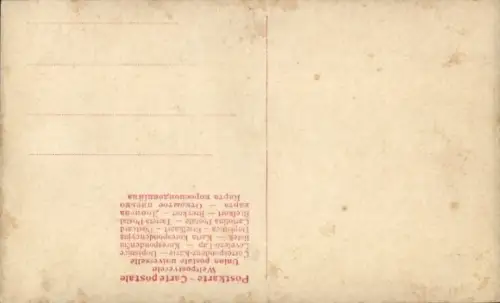 Postkarte - Carte postale
Weltpostverein
Union postale universelle
Correspondenz-Karte — Dopisnice
Levelező-Lap — Korespondenční
lístek — Karta korespondencyjna
Dopisnica — Brefkaart —
Cartolina Postale — Tarjeta Postal
Brefkort — Brevkort —
карта — Открытое письмо
Карта корреспонденційна